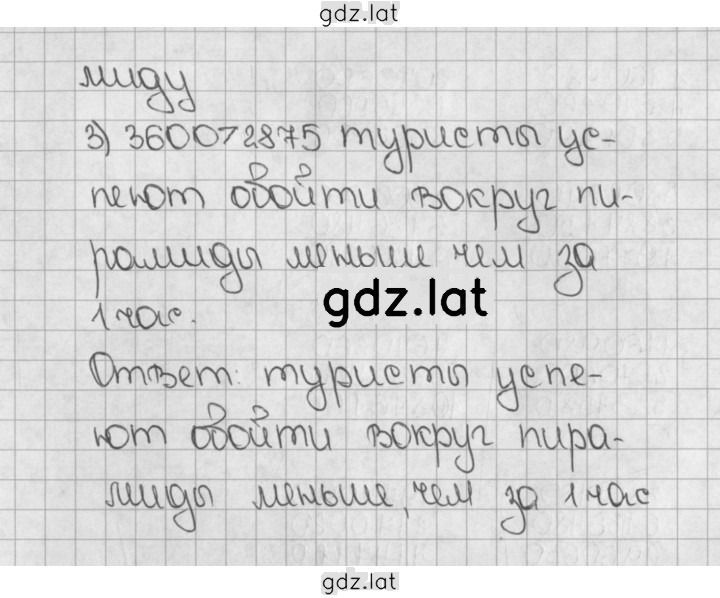 gdz.lat
миду
3) 3600>2875 туристы ус-
пеют обойти вокруг пи-
рамиды меньше чем за
1 час.
gdz.lat
Ответ: туристы успе-
ют обойти вокруг пира-
миды меньше, чем за 1 час
gdz.lat